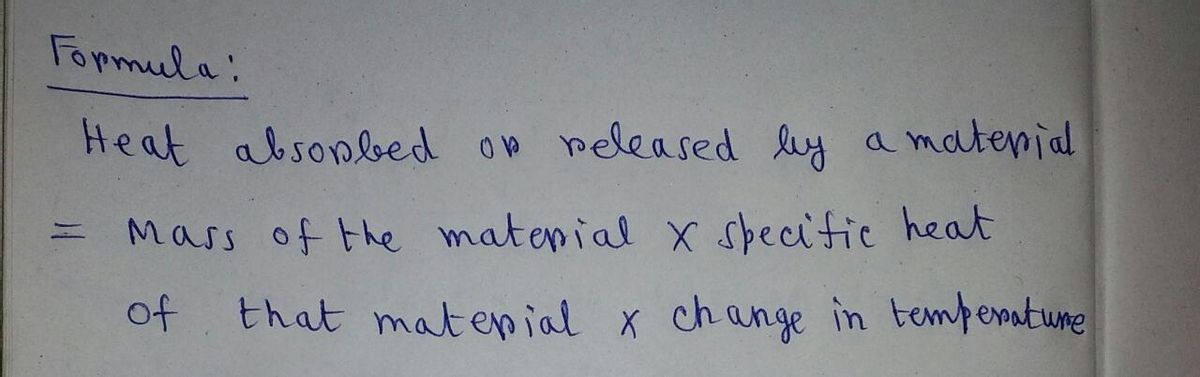 Formula:
Heat absorbed or released by a material
= Mass of the material x specific heat
of that material x change in temperature